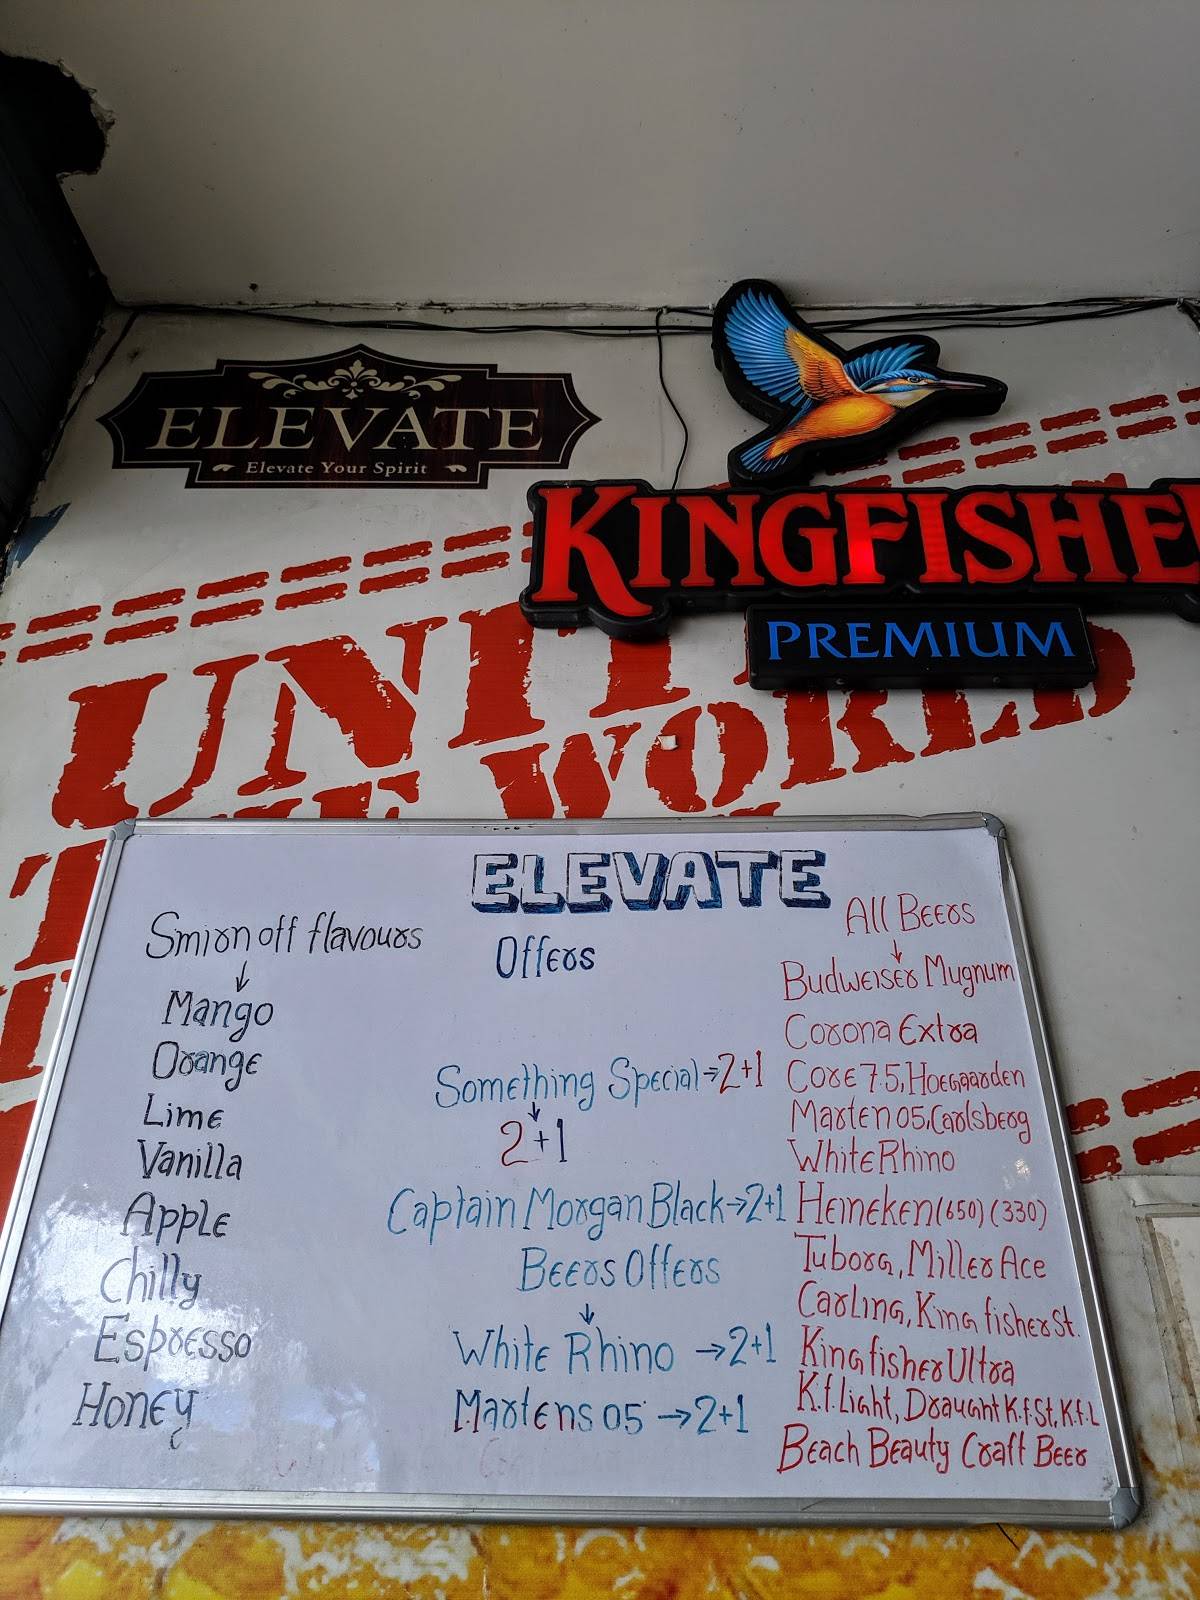 ELEVATE
Elevate Your Spirit
KINGFISHE
PREMIUM
UNIT
THE WORLD
ELEVATE
Smirnoff flavours
Mango
Orange
Lime
Vanilla
Apple
Chilly
Espresso
Honey
Offers
Something Special→2+1
2+1
Captain Morgan Black→2+1
Beers Offers
White Rhino →2+1
Martens 05 →2+1
All Beers
Budweiser Mugnum
Corona Extra
Core 7.5, Hoegaarden
Marten 05, Carlsberg
White Rhino
Heineken (650) (330)
Tuborg, Miller Ace
Carling, King fisher St.
King fisher Ultra
K.f. Light, Draught K.f. St, K.f. L
Beach Beauty Craft Beer